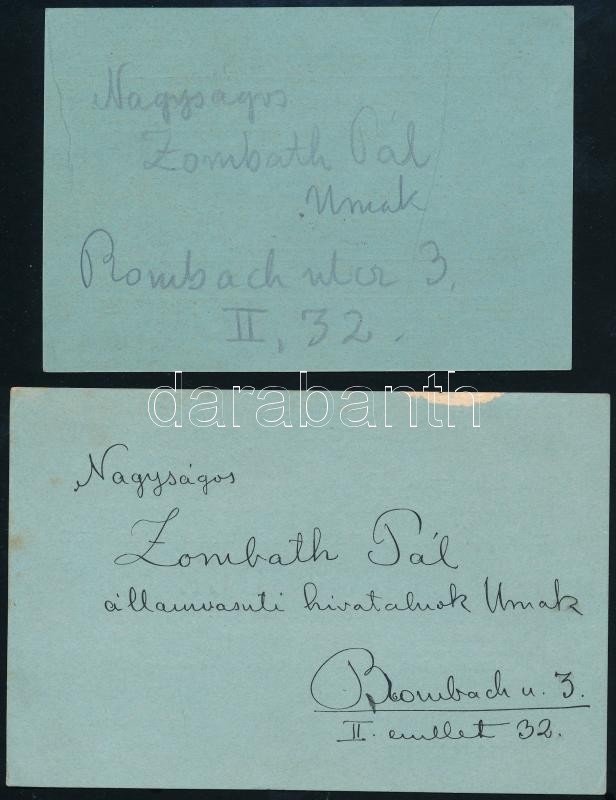 Nagyságos
Zombath Pál
Urnak
Rombach utca 3.
II, 32.
darabanth
Nagyságos
Zombath Pál
államvasuti hivatalnok Urnak
Rombach u. 3.
II. emellet 32.